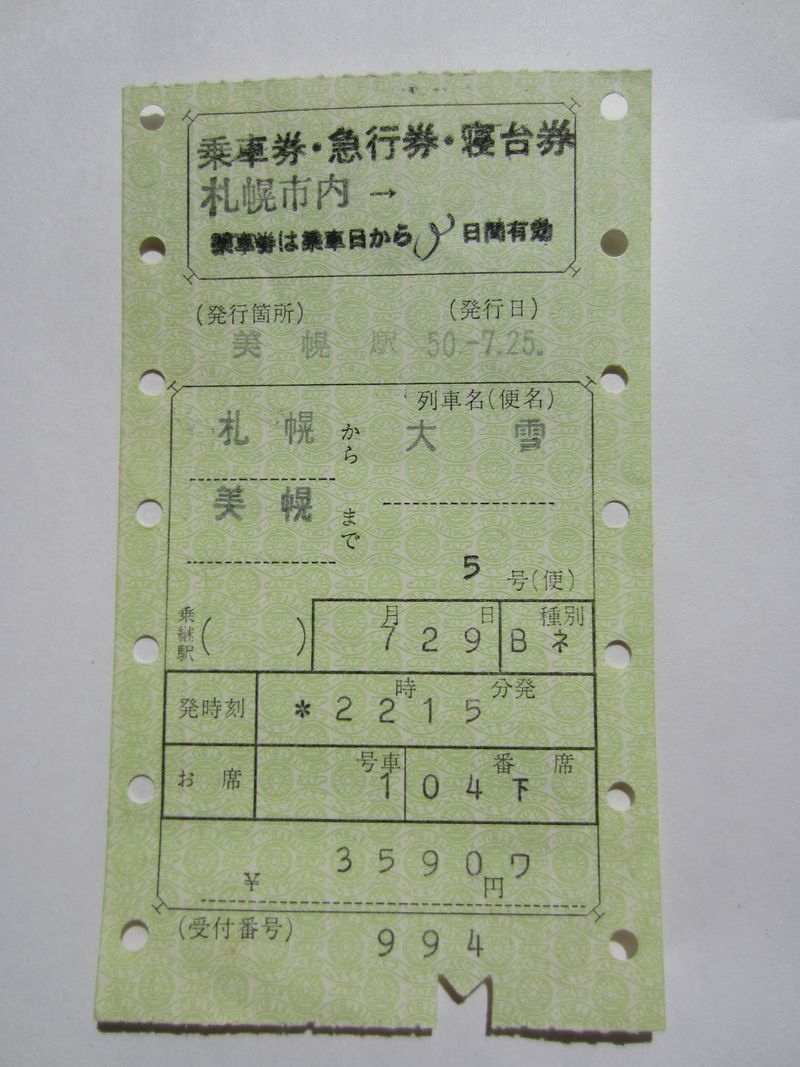 乗車券・急行券・寝台券
札幌市内 →
乗車券は乗車日から 日間有効
(発行箇所) (発行日)
美幌駅 50.-7.25.
列車名(便名)
札幌から 大雪
美幌まで
5号(便)
乗継駅( ) 7月29日 種別 Bネ
発時刻 *22時15分発
お席 1号車 04番下席
¥ 3590円ワ
(受付番号) 994